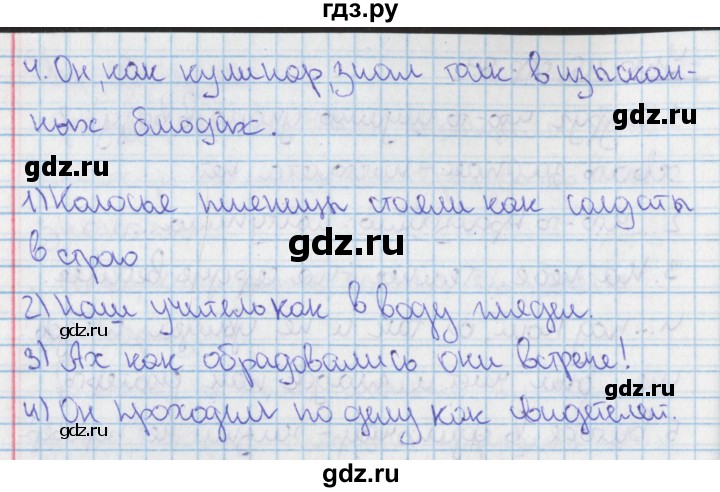 гдз.ру
4. Он, как кулинар, знал толк в изыскан-
ных блюдах.
gdz.ru
gdz.ru
1) Колосья пшеницы стояли как солдаты
в строю
gdz.ru
2) Наш учитель как в воду глядел.
gdz.ru
gdz.ru
3) Ах как обрадовались они встрече!
4) Он проходил по делу как свидетель.
gdz.ru
gdz.ru
gdz.ru